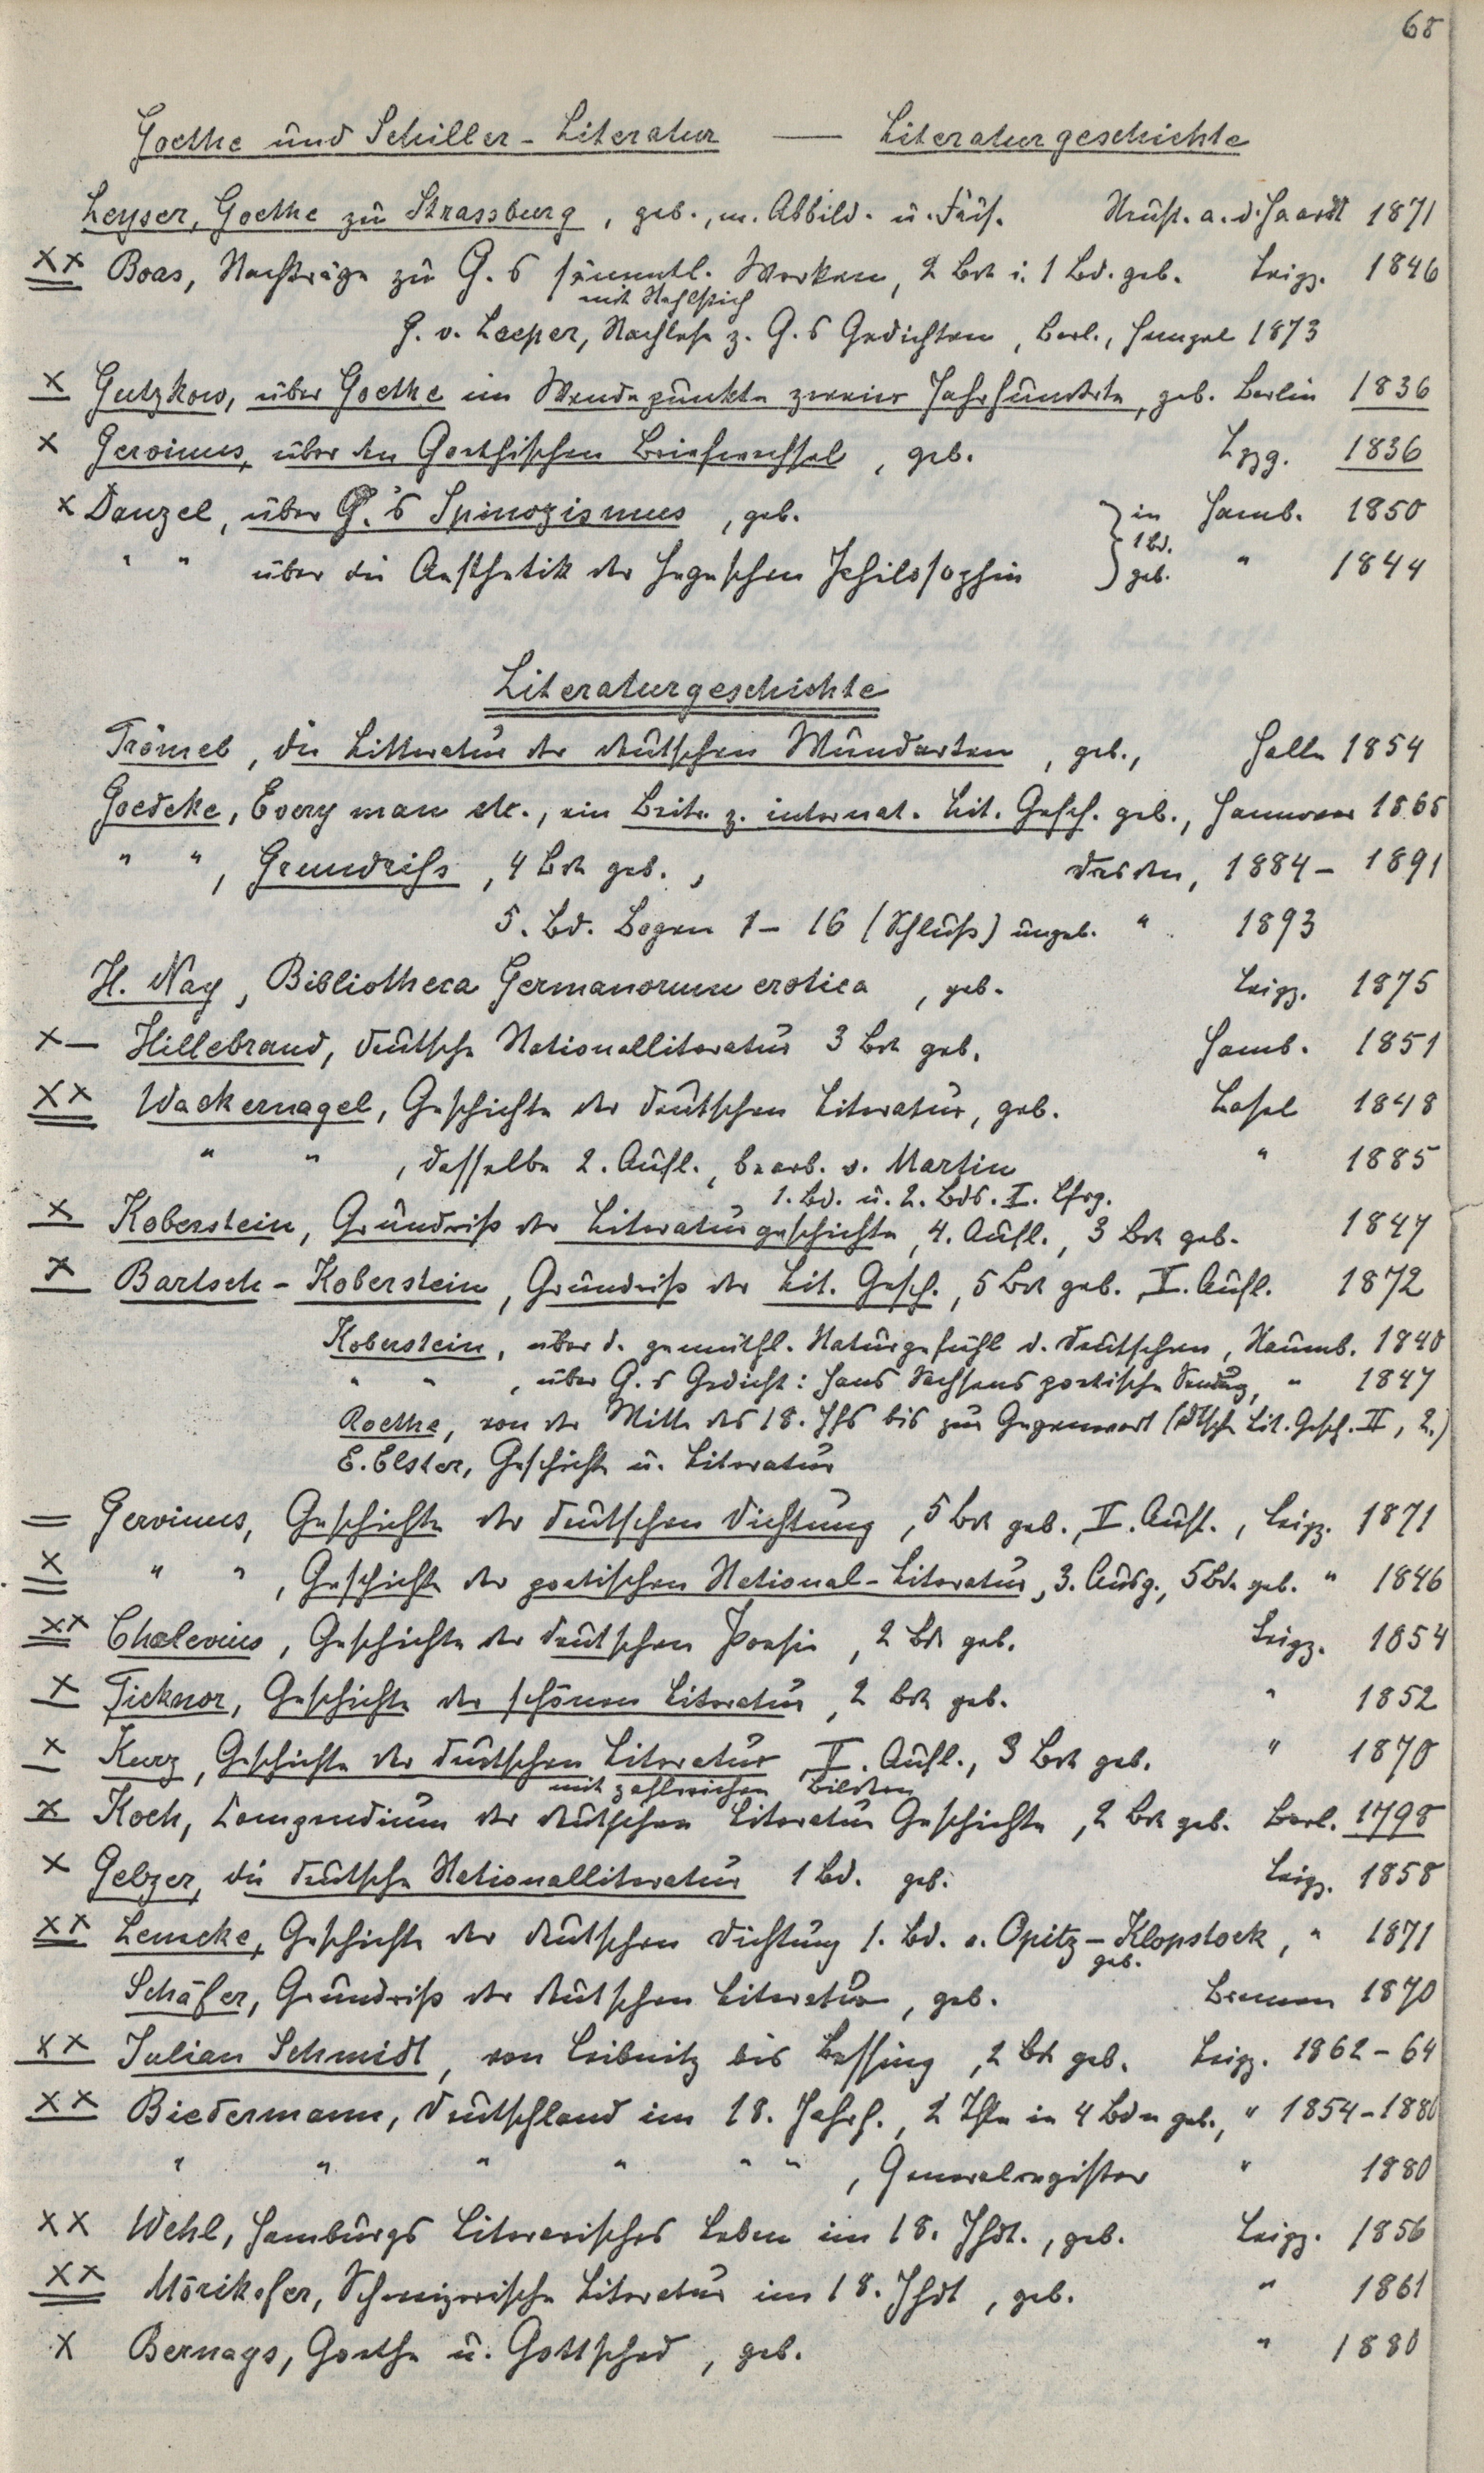 68
Goethe und Schiller-Literatur — Literaturgeschichte
Leyser, Goethe zu Strassburg, geb., m. Abbild. u. Facs. Neust. a. d. Haardt 1871
XX Boas, Nachträge zu G.s sämmtl. Werken, 2 Bde i. 1 Bd. geb. Leipz. 1846
mit Stahlstich
G. v. Loeper, Nachlese z. G.s Gedichten, Berl., Hempel 1873
X Gutzkow, über Goethe im Wendepunkte zweier Jahrhunderte, geb. Berlin 1836
X Gervinus, über den Goethischen Briefwechsel, geb. Lpzg. 1836
X Danzel, über G.'s Spinozismus, geb. } in Hamb. 1850
1 Bd.
" " über die Aesthetik der Hegelschen Philosophie } geb. " 1844
Literaturgeschichte
Trömel, die Litteratur der deutschen Mundarten, geb., Halle 1854
Goedeke, Every man etc., ein Beitr. z. internat. Lit. Gesch. geb., Hannover 1865
" ", Grundriss, 4 Bde geb., Dresden, 1884 - 1891
5. Bd. Bogen 1 - 16 (Schluß) ungeb. " 1893
H. Nay, Bibliotheca Germanorum erotica, geb. Leipz. 1875
X— Hillebrand, deutsche Nationalliteratur 3 Bde geb. Hamb. 1851
XX Wackernagel, Geschichte der deutschen Literatur, geb. Basel 1848
" ", dasselbe 2. Aufl., bearb. v. Martin " 1885
1. Bd. u. 2. Bds. I. Lfrg.
X Koberstein, Grundriss der Literaturgeschichte, 4. Aufl., 3 Bde geb. 1847
X Bartsch - Koberstein, Grundriss der Lit. Gesch., 5 Bde geb. V. Aufl. 1872
Koberstein, über d. gemüthl. Naturgefühl d. Deutschen, Naumb. 1840
" ", über G.s Gedicht: Hans Sachsens poetische Sendung, " 1847
Roethe, von der Mitte des 18. Jhs bis zur Gegenwart (Dtsch. Lit. Gesch. II, 2.)
E. Elster, Geschichte u. Literatur
= Gervinus, Geschichte der deutschen Dichtung, 5 Bde geb., V. Aufl., Leipz. 1871
X " ", Geschichte der poetischen National-Literatur, 3. Ausg., 5 Bde geb. " 1846
XX Cholevius, Geschichte der deutschen Poesie, 2 Bde geb. Leipz. 1854
X Ticknor, Geschichte der schönen Literatur, 2 Bde geb. " 1852
X Kurz, Geschichte der deutschen Literatur V. Aufl., 3 Bde geb. " 1870
mit zahlreichen Bildern
X Koch, Compendium der deutschen Literatur Geschichte, 2 Bde geb. Berl. 1798
X Gelzer, die deutsche Nationalliteratur 1 Bd. geb. Leipz. 1858
XX Lemcke, Geschichte der deutschen Dichtung 1. Bd. v. Opitz - Klopstock, " 1871
geb.
Schäfer, Grundriss der deutschen Literatur, geb. Bremen 1870
XX Julian Schmidt, von Leibnitz bis Lessing, 2 Bde geb. Leipz. 1862 - 64
XX Biedermann, Deutschland im 18. Jahrh., 2 Thle in 4 Bdn geb., " 1854 - 1880
" " " " " ", Generalregister " 1880
XX Wehl, Hamburgs Literarisches Leben im 18. Jhdt., geb. Leipz. 1856
XX Mörikofer, Schweizerische Literatur im 18. Jhdt, geb. " 1861
X Bernays, Goethe u. Gottsched, geb. " 1880